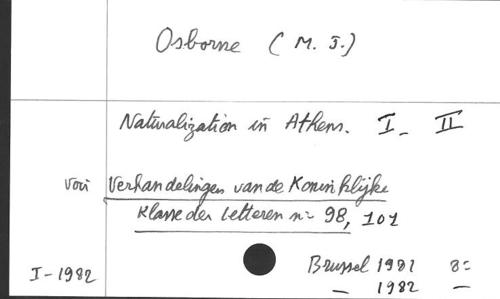 Osborne (M. J.)
Naturalization in Athens. I - II
voir Verhandelingen van de Koninklijke
Klasse der Letteren n= 98, 101
Brussel 1981 8=
I - 1982 — 1982 —